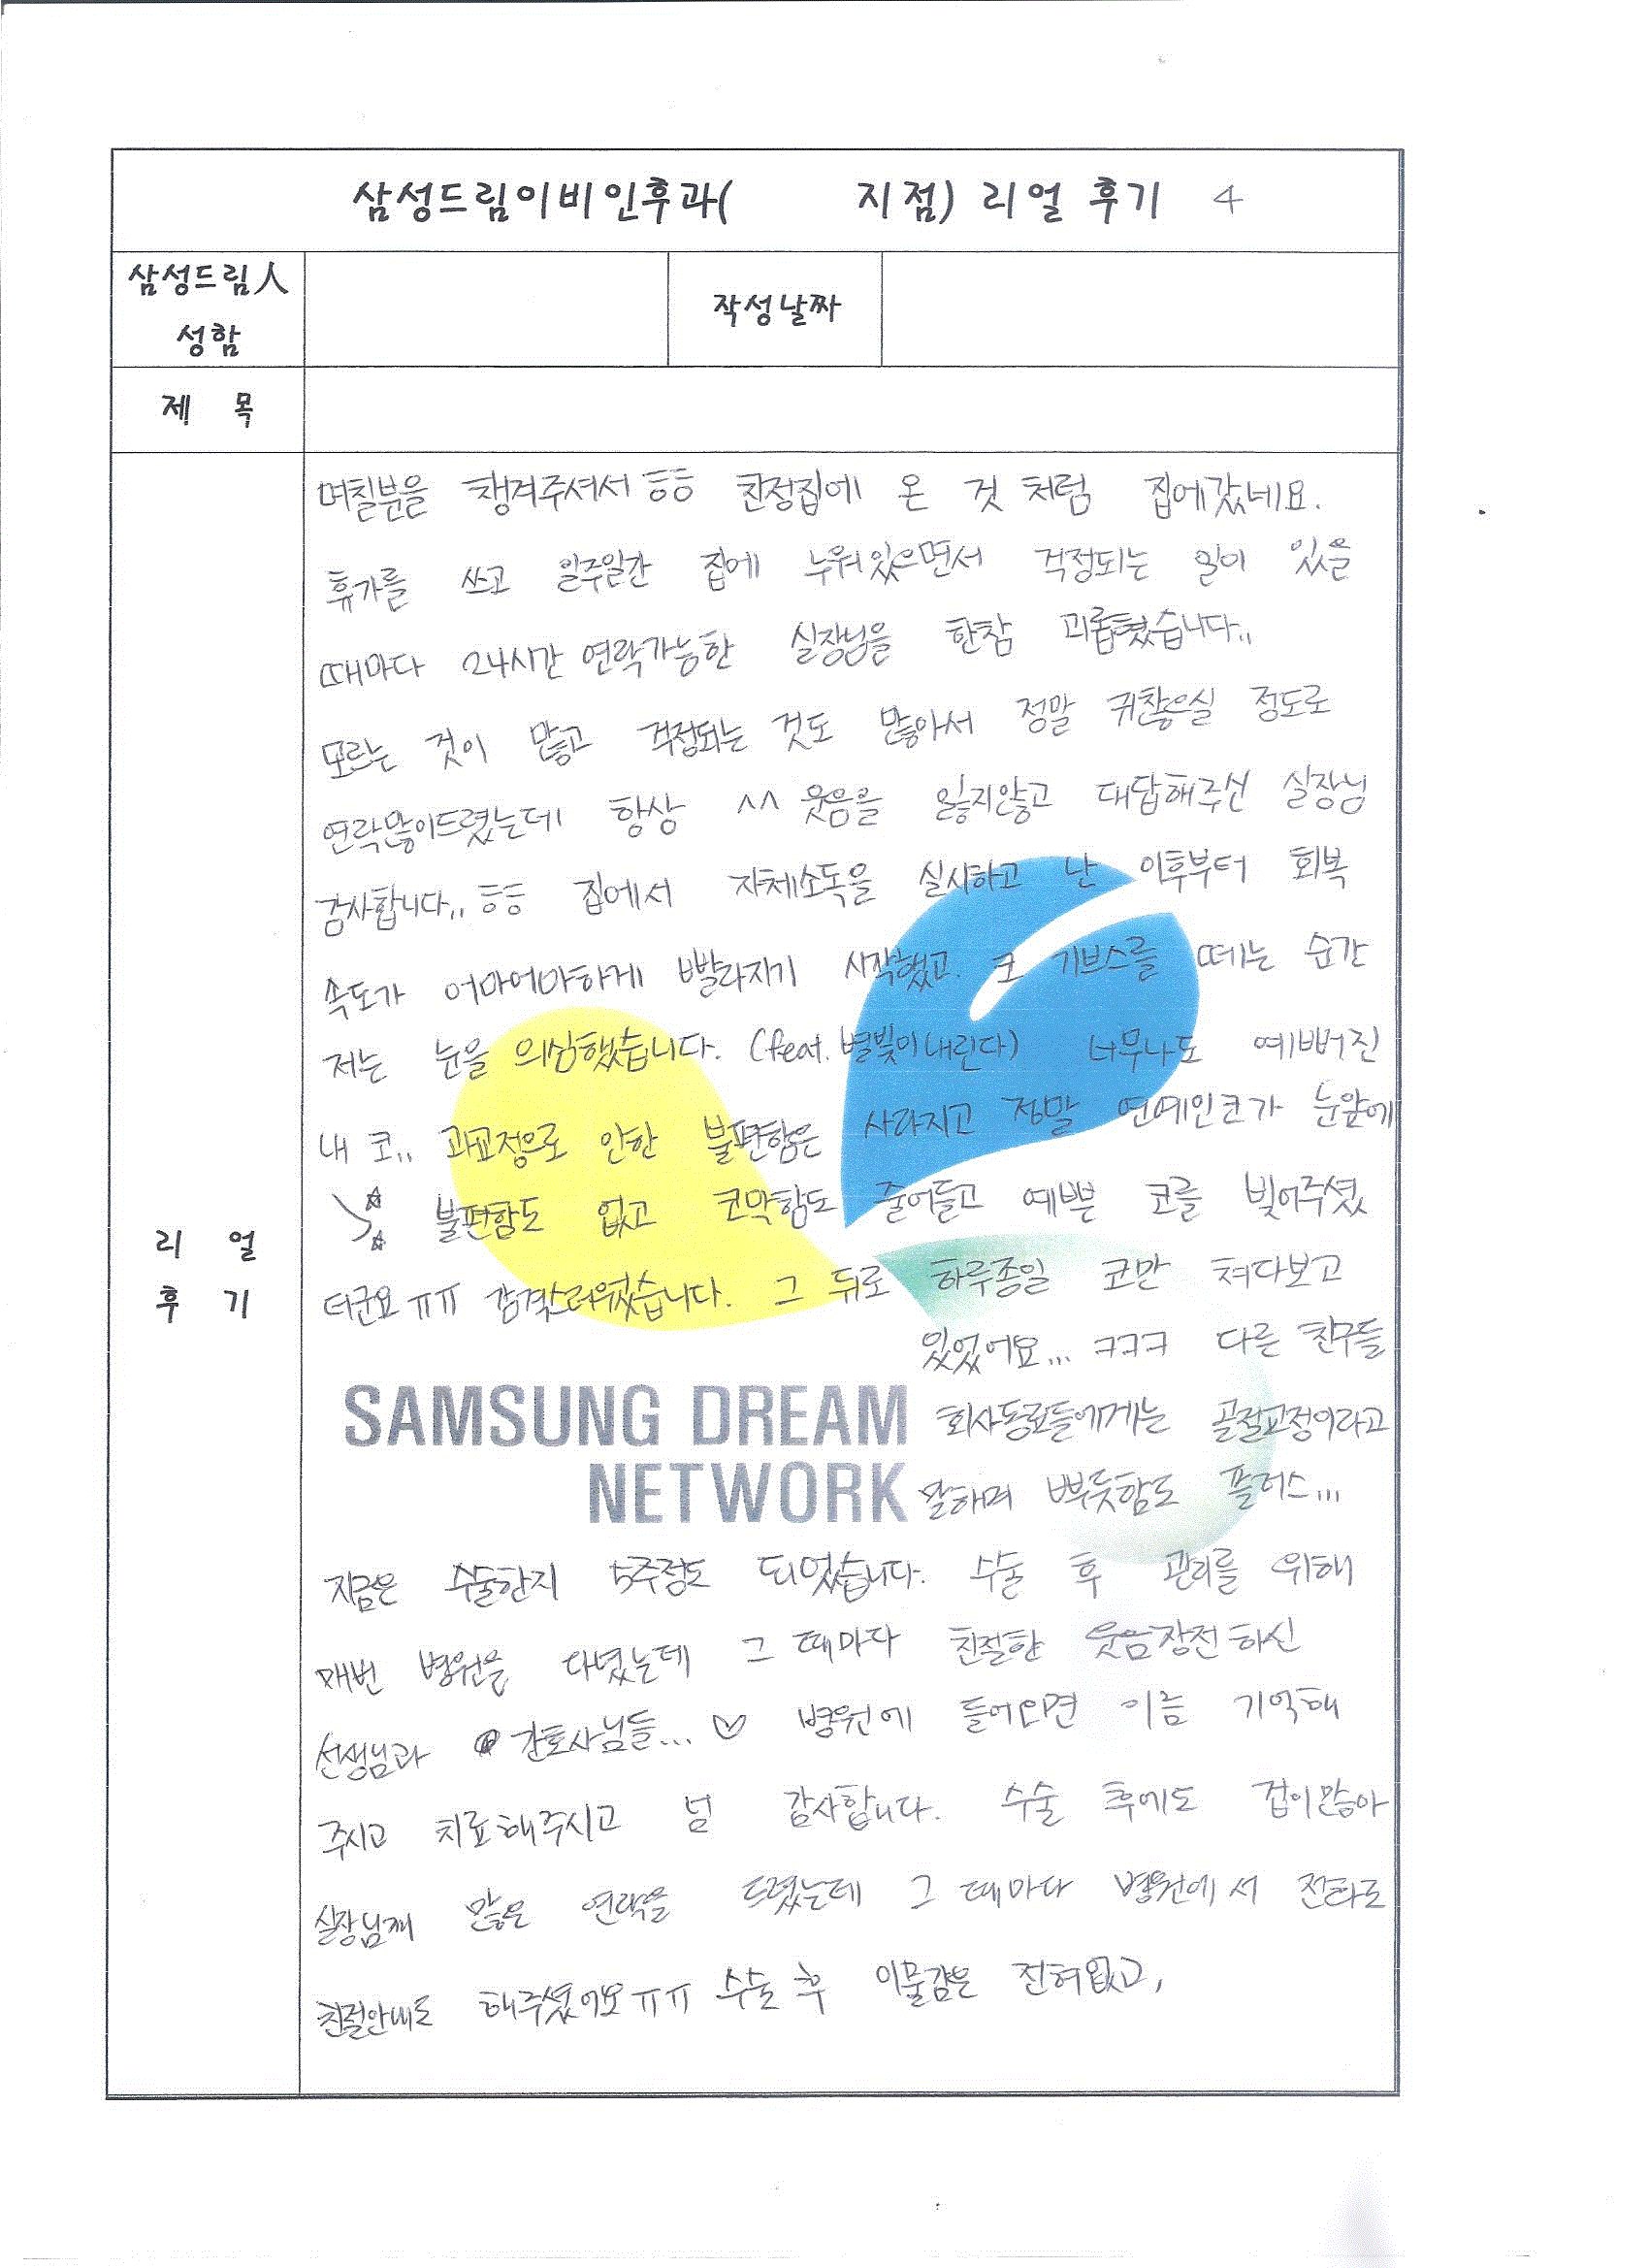 삼성드림이비인후과(      지점) 리얼 후기 4
삼성드림人
성함
작성날짜
제 목
며칠분을 챙겨주셔서 ㅎㅎ 친정집에 온 것 처럼 집에갔네요.
휴가를 쓰고 일주일간 집에 누워있으면서 걱정되는 일이 있을
때마다 24시간 연락가능한 실장님을 한참 괴롭혔습니다..
모르는 것이 많고 걱정되는 것도 많아서 정말 귀찮으실 정도로
연락많이드렸는데 항상 ^^ 웃음을 잃지않고 대답해주신 실장님
감사합니다.. ㅎㅎ 집에서 자체소독을 실시하고 난 이후부터 회복
속도가 어마어마하게 빨라지기 시작했고. 코 기브스를 떼는 순간
저는 눈을 의심했습니다. (feat. 별빛이내린다) 너무나도 예뻐진
내 코.. 과교정으로 인한 불편함은 사라지고 정말 연예인코가 눈앞에
불편함도 없고 코막힘도 줄어들고 예쁜 코를 빚어주셨
더군요 ㅠㅠ 감격스러웠습니다. 그 뒤로 하루종일 코만 쳐다보고
있었어요... ㅋㅋㅋ 다른 친구들
회사동료들에게는 골절교정이라고
말하며 뿌듯함도 플러스...
리 얼
후 기
SAMSUNG DREAM
NETWORK
지금은 수술한지 5주정도 되었습니다. 수술 후 관리를 위해
매번 병원을 다녔는데 그 때마다 친절한 웃음장전하신
선생님과 간호사님들... ♡ 병원에 들어오면 이름 기억해
주시고 치료해주시고 넘 감사합니다. 수술 후에도 겁이많아
실장님께 많은 연락을 드렸는데 그 때마다 병원에서 전화로
친절안내도 해주셨어요 ㅠㅠ 수술 후 이물감은 전혀없고,